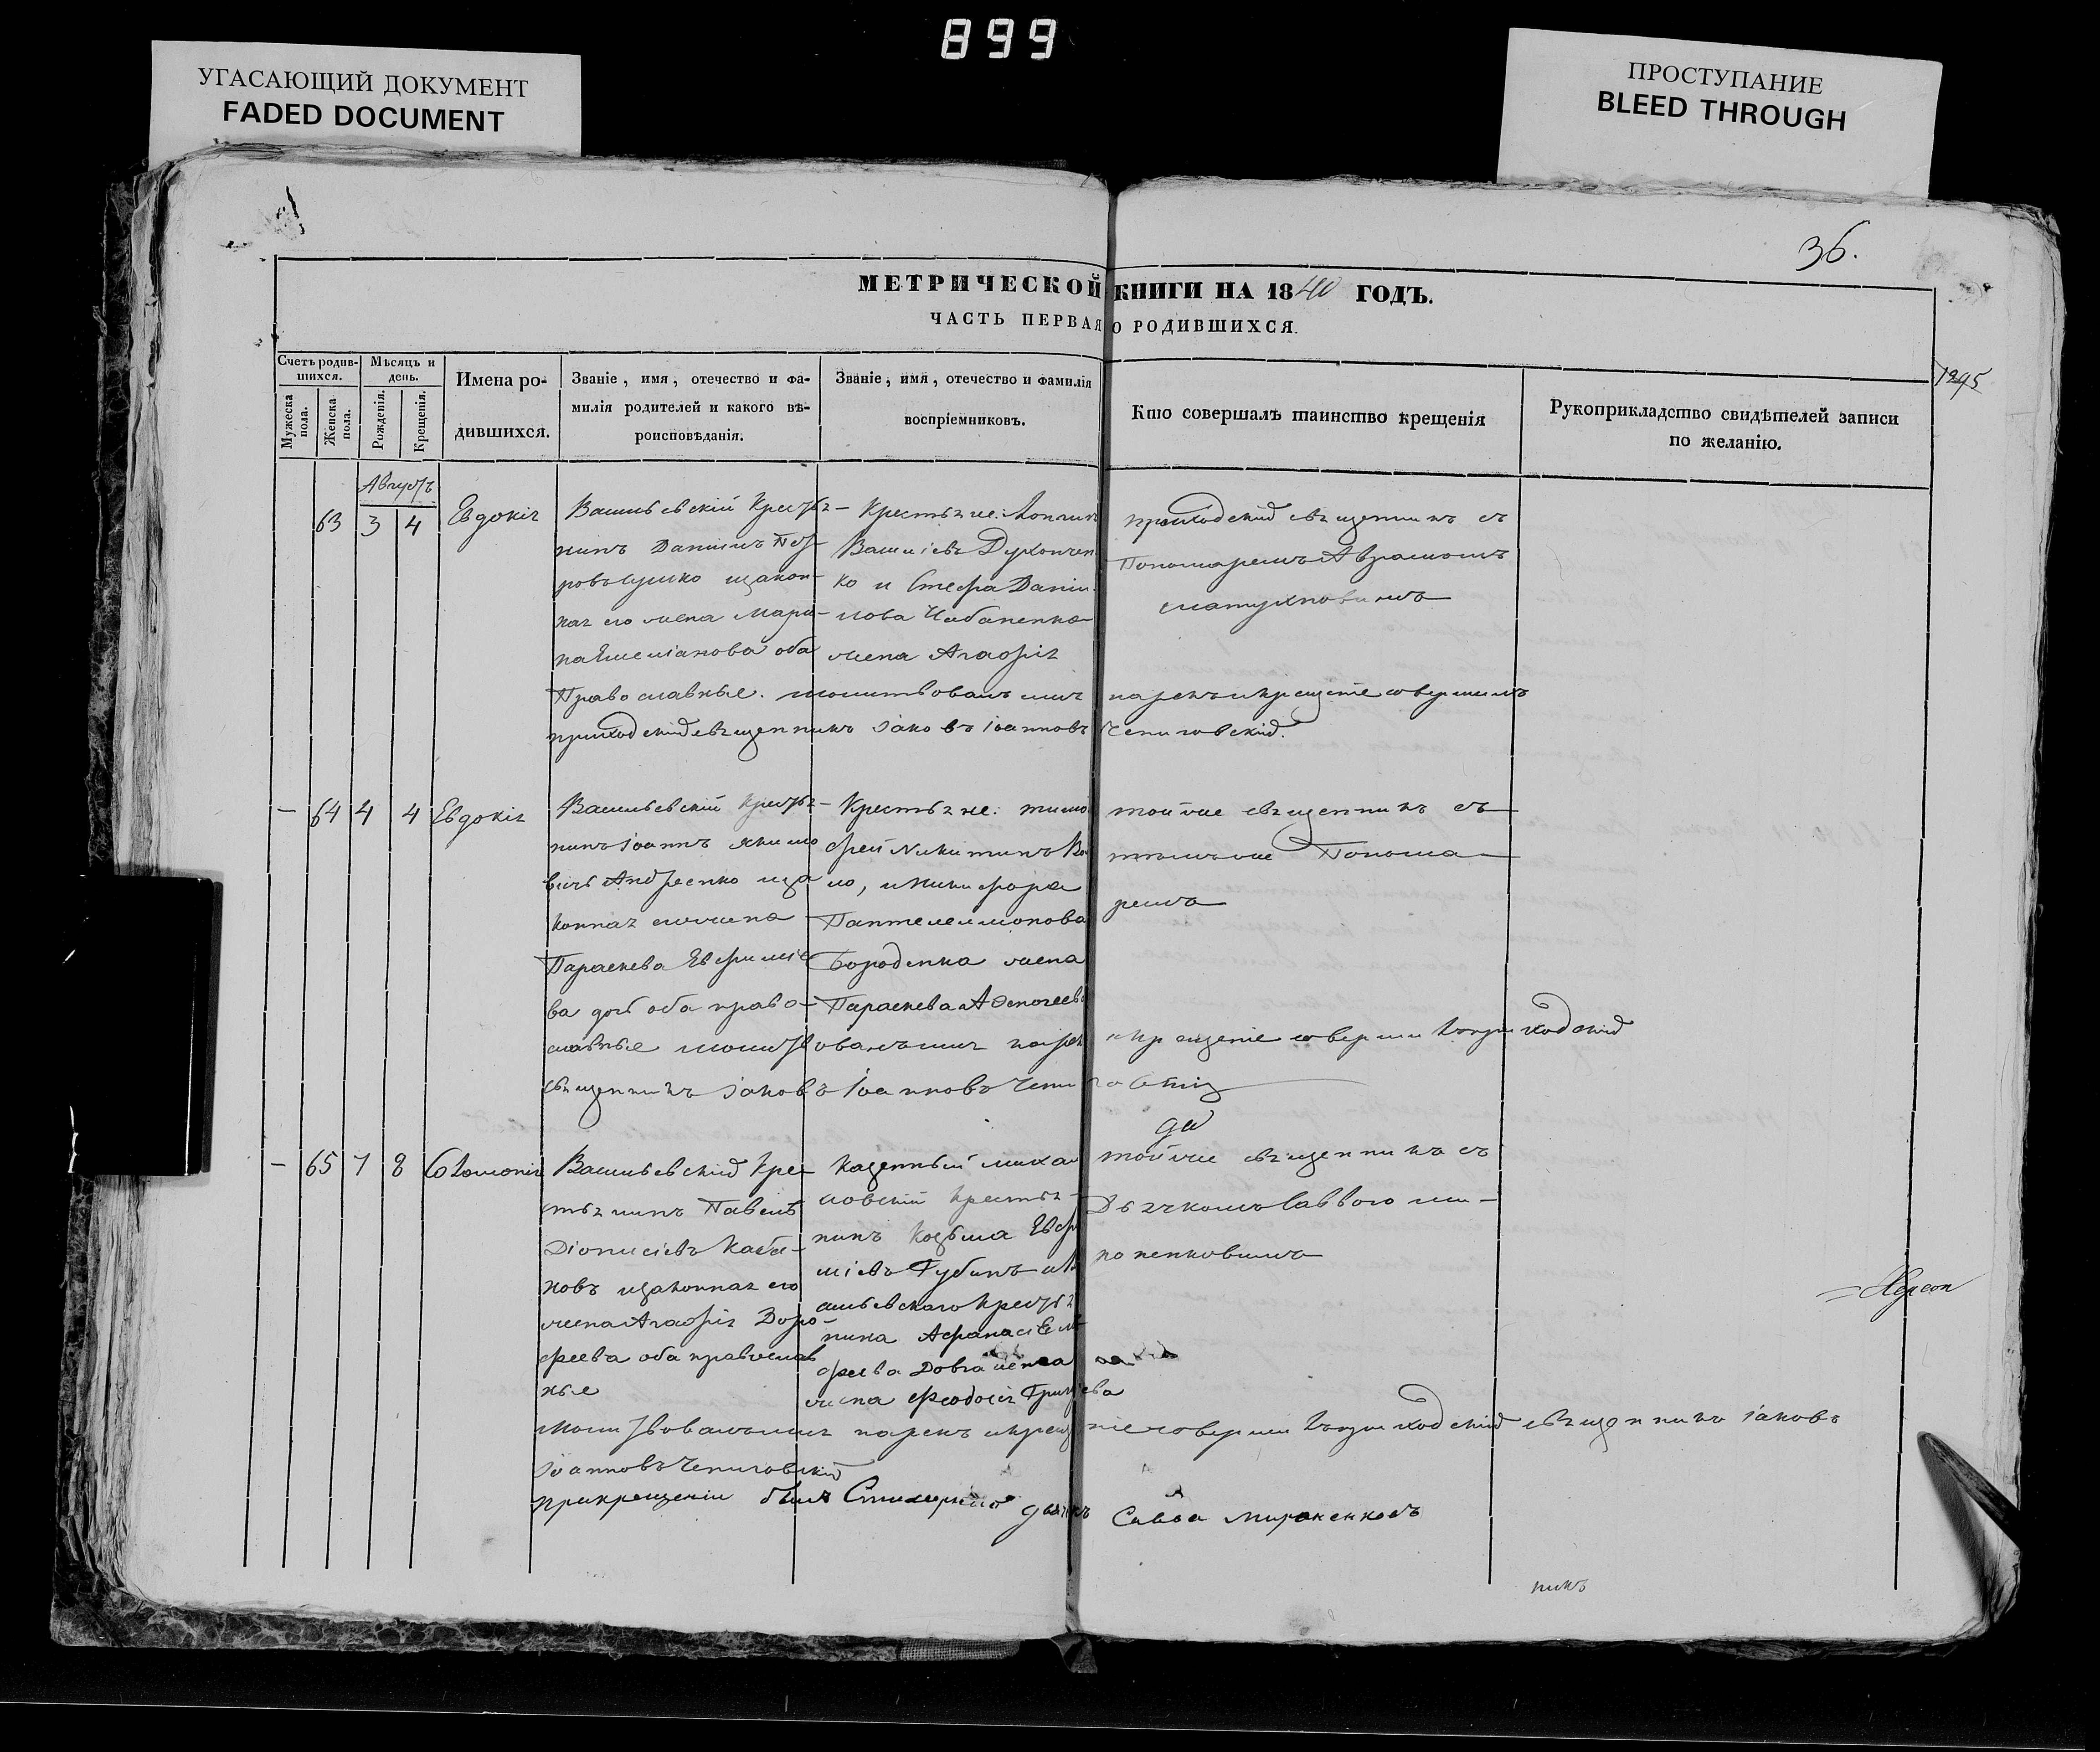 899
УГАСАЮЩИЙ ДОКУМЕНТ
FADED DOCUMENT
ПРОСТУПАНИЕ
BLEED THROUGH
36.
МЕТРИЧЕСКОЙ КНИГИ НА 1840 ГОДЪ.
ЧАСТЬ ПЕРВАЯ О РОДИВШИХСЯ.
1295
Счетъ родившихся.
Мужеска пола.
Женска пола.
Мѣсяцъ и день.
Рожденія.
Крещенія.
Имена родившихся.
Званіе, имя, отечество и фа-
милія родителей и какого вѣ-
роисповѣданія.
Званіе, имя, отечество и фамилія
воспріемниковъ.
Кто совершалъ таинство крещенія
Рукоприкладство свидѣтелей записи
по желанію.
Августъ
63 3 4 Евдокія
Васильевскій Крестья-
нинъ Даніилъ Пет-
ровъ изакон-
ная его жена Мари-
на Емеліанова оба
Православные.
Крестьяне:
Василіевъ Духончен
ко и Стефа Дании
лова Чабаненка
жена Агафія
приходскій священникъ съ
Пономаремъ Авраамомъ
молитвовалъ имя нарекъ и крещеніе совершилъ
приходскій священникъ Іаковъ Іоанновъ Чениговскій.
— 64 4 4 Евдокія
Васильевскій крестья-
нинъ Іоаннъ Якимо
вичъ Андреенко иза
конная его жена
Параскева Евфиміе
ва дочь оба право-
славные
Крестьяне: тимо
фей Никитинъ
ло, и Никифора
Пантелеимонова
Бороденка жена
Параскева Афеногеева
тойже священникъ съ
тѣмъже Понома-
ремъ
молитвовалъ имя нарек и крещеніе совершилъ приходскій
священникъ Іаковъ Іоанновъ Чениговскій
— 65 7 8 Соломонія
Васильевскій Кре-
стьянинъ Павелъ
Діонисіевъ
новъ изаконная его
жена Агафія Доро-
феева оба православ
ные
Казенный михаи
ловскій крестья-
нинъ Козьма Евфи
міевъ Губинъ и Ва
сильевского крестья
нина Афанасі
феева Довгаленка
жена Феодосія Григ ева
тойже священникъ съ
Дьячкомъ Саввою ми-
роненковымъ
Херсон
молитвовалъ имя нарекъ и крещеніе совершилъ приходскій священникъ Іаковъ
Іоанновъ Чениговскій
при крещеніи былъ дьячокъ Савва Мироненковъ
никъ